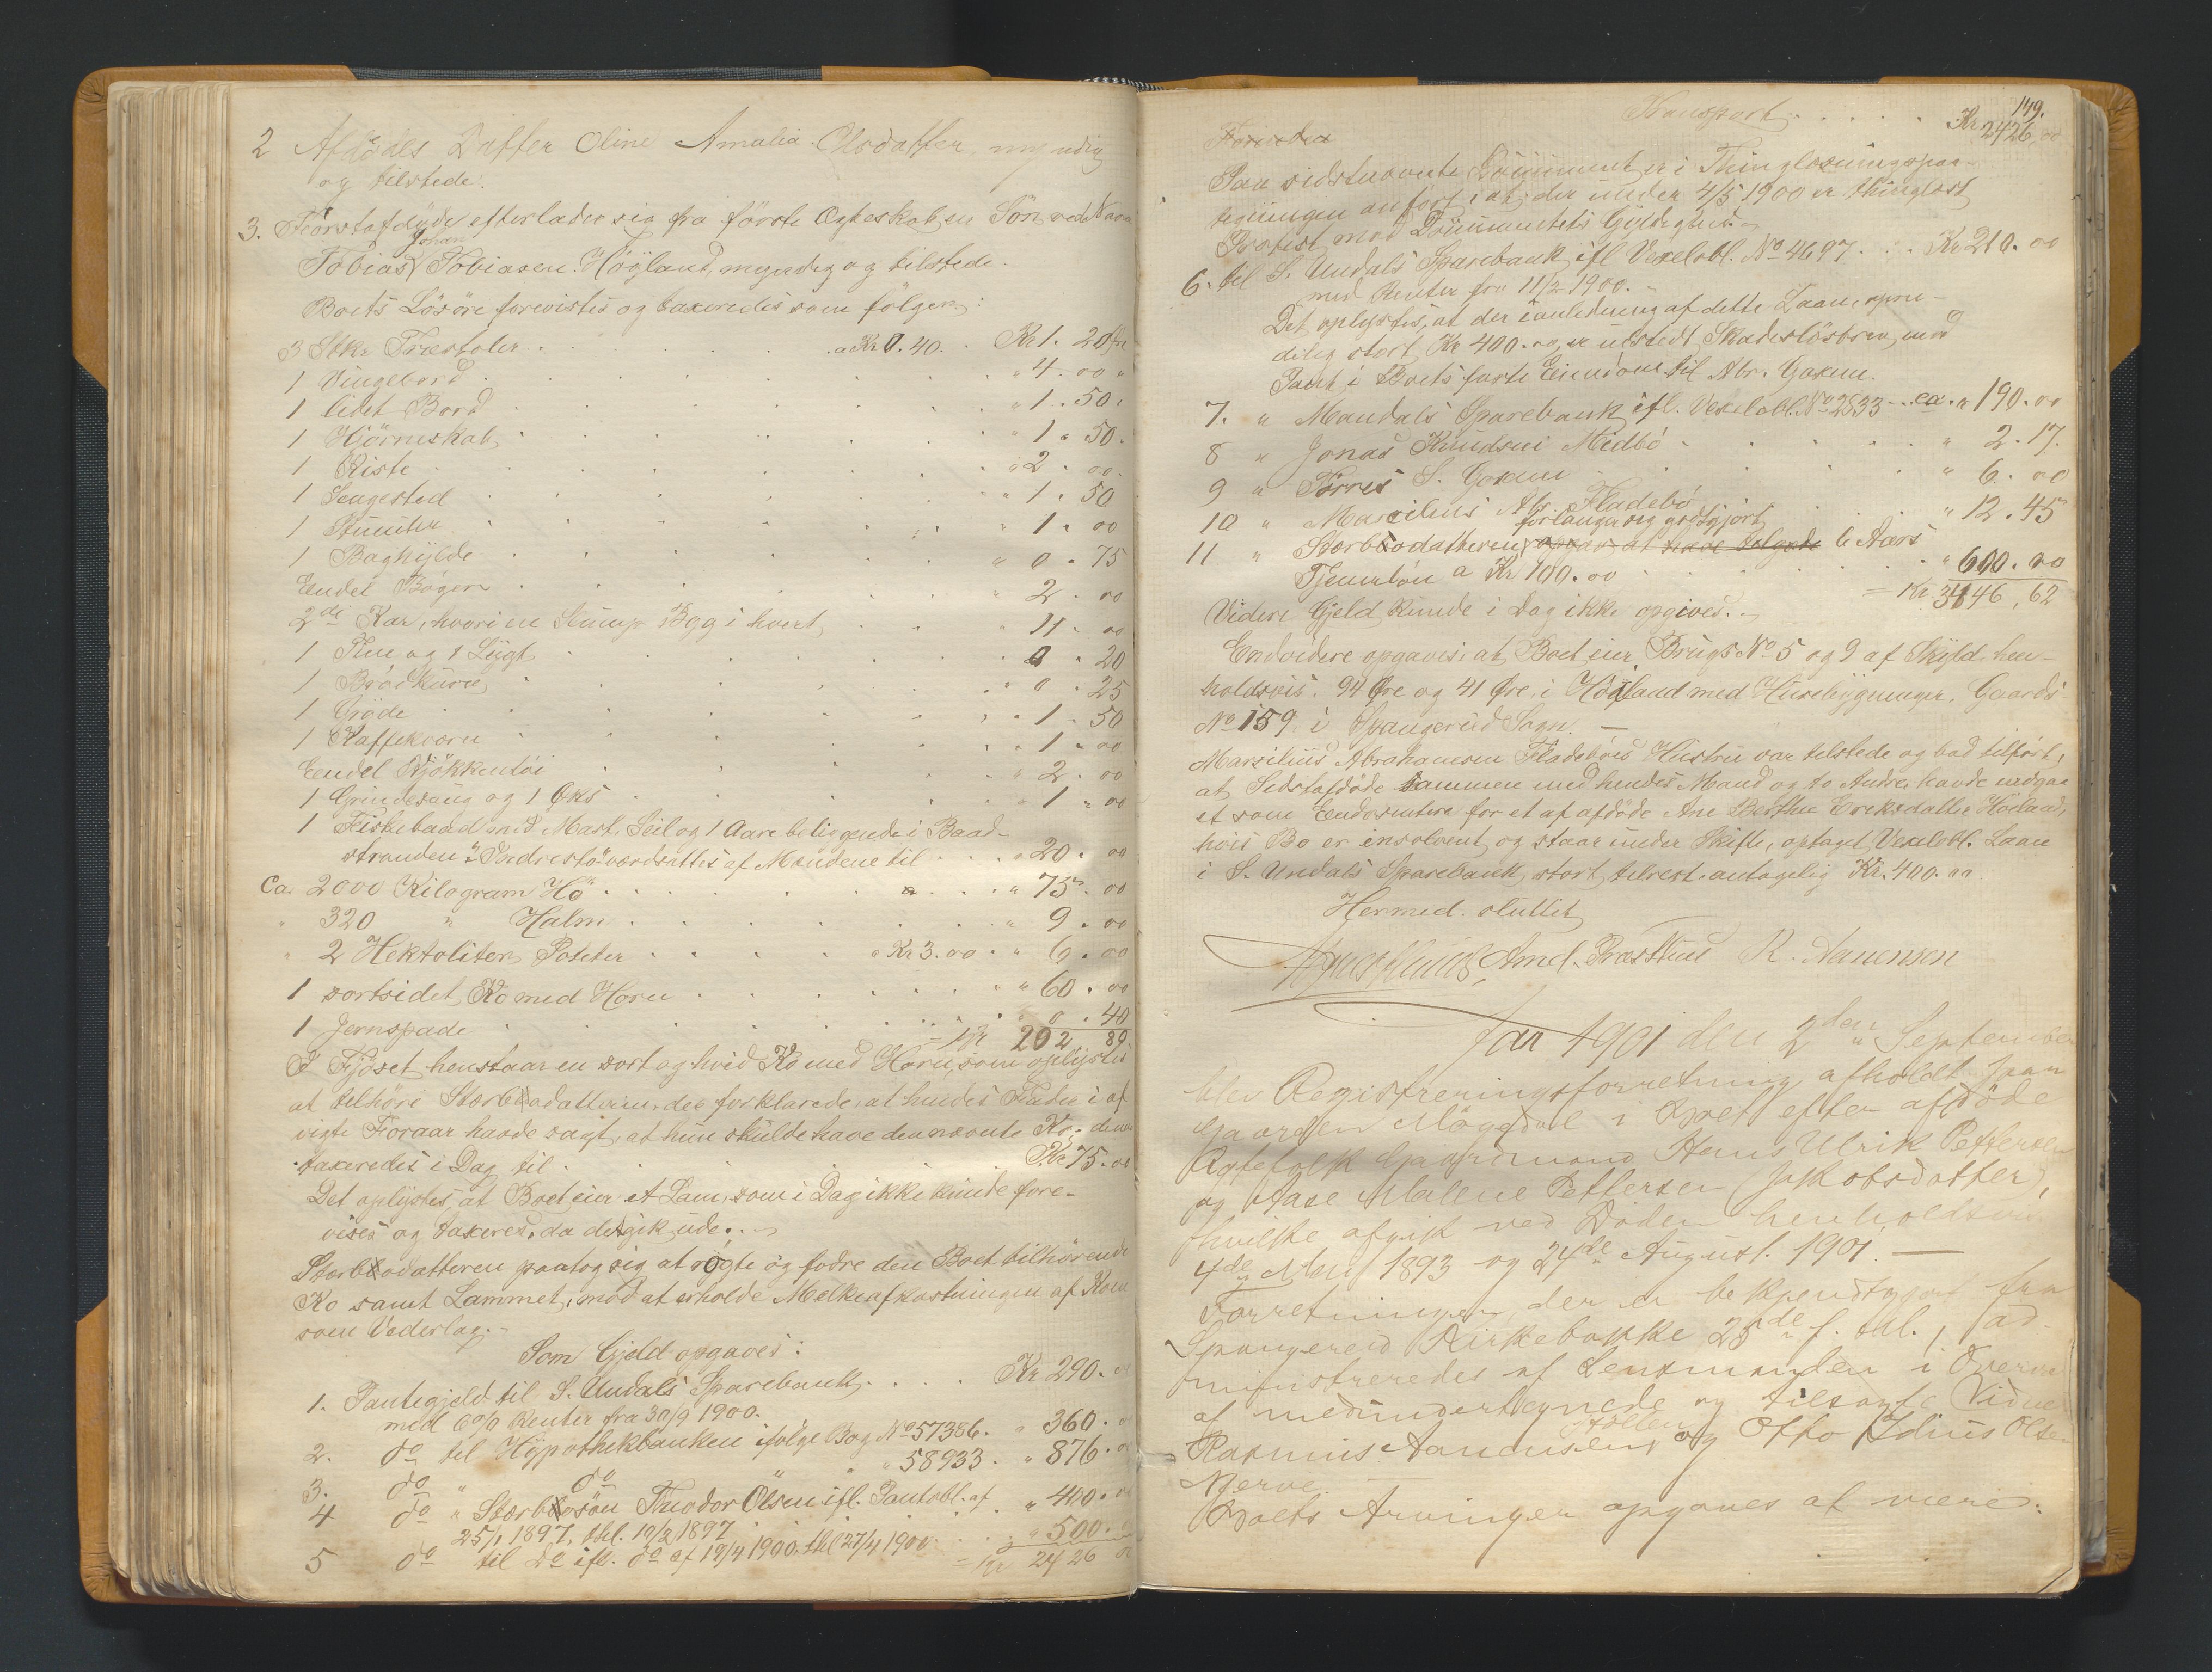 2 Afdødes Datter Oline Amalia Olsdatter, myndig
og tilstede.
3. Førstafdøde efterlader sig fra første Ægteskab en Søn ved Navn
Johan
Tobias Tobiasen Höyland, myndig og tilstede.
Boets Lösöre forevistes og taxeredes som fölger:
3 Stkr Træstoler . . . a Kr 0.40. Kr 1. 20
1 Vingebord . . . " 4. 00 "
1 lidet Bord . . . " 1. 50.
1 Hjörneskab . . . " 1 " 50.
1 Kiste . . . " 2. 00.
1 Sengested . . . " 1. 50
1 Stueuhr . . . " 1. 00
1 Baghylde . . . " 0. 75
Endel Bøger . . . " 2. 00
2de Kar, hvori en Slump Byg i hvert, . . . " 11. 00
1 Tine og 1 Lygt . . . 0. 20
1 Brödkurv . . . " 0. 25
1 Gryde . . . " 1. 50
1 Kaffekværn . . . " 1. 00
Endel Kjökkentöi . . . " 2. 00
1 Grindesaug og 1 Øks . . . " 1. 00
1 Fiskebaad med Mast, Seil og 1 Aare beliggende i Baad-
stranden værdsattes af Mændene til . . . " 20. 00
Ca. 2000 Kilogram Hö . . . " 75. 00
" 320 " Halm . . . " 9. 00
" 2 Hektoliter Poteter . . . a Kr 3.00. " 6. 00
1 sortsidet Ko med Horn . . . " 60. 00
1 Jernspade . . . " 0. 40
= Kr 202 80
I Fjöset henstaar en sort og hvid Ko med Horn, som oplystes
at tilhöre Stærbodatteren, der forklarede, at hendes Fader i af
vigte Foraar havde sagt, at hun skulde have den nævnte Ko, denne
taxeredes i Dag til . . . Kr 75. 00
Det oplystes, at Boet eier et Lam, som i Dag ikke kunde fore-
vises og taxeres, da det gik ude. -
Stærbodatteren paatog sig at røgte og fodre den Boet tilhörende
Ko samt Lammet, mod at erholde Melkeafkastningen af Koen
som Vederlag. -
Som Gjeld opgaves:
1. Pantegjeld til S. Undals Sparebank . . . Kr 290.
med 6 % Renter fra 30/9 1900.
2. do til Hypothekbanken ifølge Bog No 57356. " 360.
3. do " do " " 58933. " 876.
4 do " Stærbosøn Theodor Olsen ifl. Pantobl. af " 400.
25/1 1897, thl. 10/2 1897
5 do til do ifl. do af 19/4 1900. thl 27/4 1900 . . . " 500.
= Kr 2426 00
149.
Transport . . . Kr 2426, 00
Paa sidstnævnte Document er i Thinglæsningspaa-
tegningen anført, at der under 4/5 1900 er thinglæst
Protest mod Documentets Gyldighed. -
6. til S. Undals Sparebank ifl Vexelobl. No 4697 . . Kr 210. 00
med Renter fra 11/2 1900. -
Det oplystes, at der i anledning af dette Laan, opri-
delig stort Kr 400.00, er udstedt Skadeslösbrev med
Pant i Boets faste Eiendom til Abr. Gaxen.
7. " Mandals Sparebank ifl. Vexelobl. No 2833 - ca. " 190. 00
8 " Jonas Knudsen Midbö . . . " 2. 17.
9 " Törres S. Gaxen . . . " 6. 00
10 " Marcilius Abr. Fladebö . . . " 12. 45
forlanger sig godtgjort
11 " Stærbodatteren 6 Aars
Tjenerløn a Kr 100. 00 . . . " 600. 00
= Kr. 3446, 62
Videre Gjeld kunde i Dag ikke opgives. -
Endvidere opgaves, at Boet eier Brugs No 5 og 9 af Skyld hen-
holdsvis. 94 Øre og 41 Øre, i Höiland med Husebygninger, Gaards
No 159 i Spangereid Sogn. -
Marsilius Abrahamsen Fladebös Hustru var tilstede og bad tilført,
at Sidstafdöde sammen med hendes Mand og to Andre havde indgaa
et som Endosentere for et af afdøde Ane Berthe Eriksdatter Höiland,
hvis Bo er insolvent og staar under Skifte, optaget Vexelobl. Laan
i S. Undals Sparebank, stort, tilrest, antagelig Kr. 400. 00
Hermed sluttet
Amd. Præsthus R. Aanensen
Aar 1901 den 2den September
blev Registreringsforretning afholdt paa
Gaarden Mögedal i Boet efter afdöde
Ægtefolk Gaardmand Hans Ulrik Pettersen
og Aase Malene Pettersen (Jakobsdatter),
hvilke afgik ved Döden henholdsvis
4de Mai 1893 og 24de August 1901. -
Forretningen, der er bekjendtgjort fra
Spangereid Kirkebakke 25de f. M., ad-
ministreredes af Lensmanden i Overvær
af medundertegnede og tilsagte Vidner
Rasmus Aanensen og Otto Idius Olsen
Njerve.
Boets Arvinger opgaves at være: